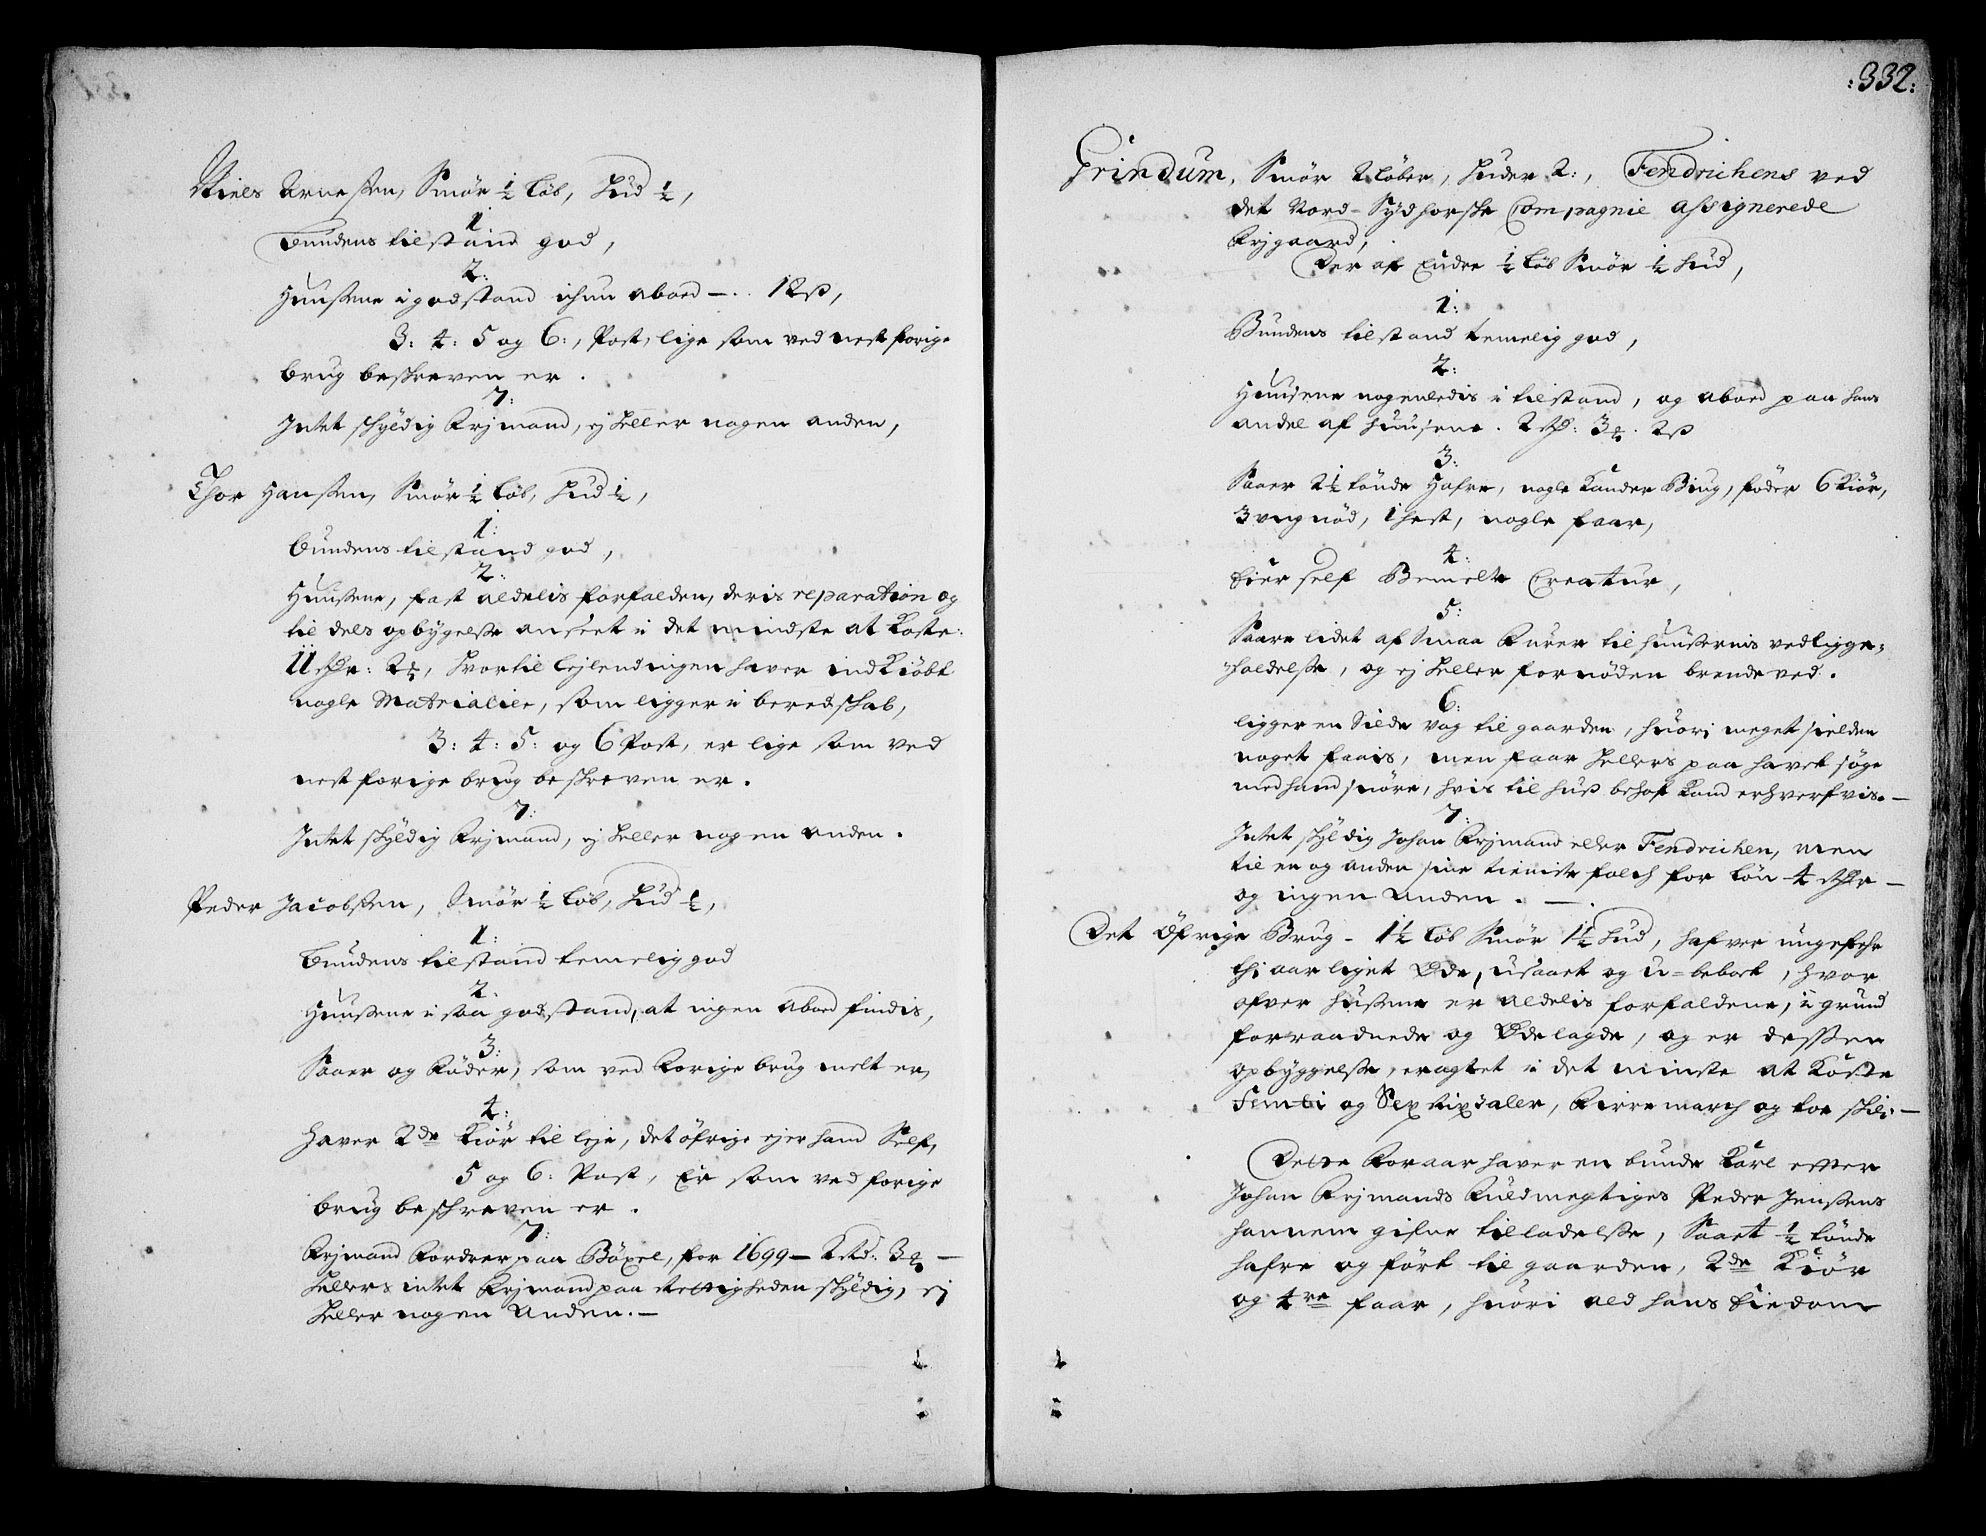 Niels Arneßen, Smør ½ Løb, Hud ½,
1
Bundens tilstand god,
2:
Huußene i god stand ihun aboed — .. 12ß,
3: 4: 5 og 6:, Post, lige som ved nest forige
brug beskreven er.
7:
Intet skyldig Rejmand, ej heller nogen anden,
Thor Hanßen, Smør ½ Løb, Hud ½,
1:
Bundens tilstand god,
2:
Huußene, fast aldelis forfalden, deris reparation og
til dels opbÿgelse anseet i det mindste at Koste:
11 Rdr: 2 , hvortil Lejlendingen haver indKiøbt
nogle Matrialier, som ligger i beredskab,
3: 4: 5: og 6 Post, er lige som ved
nest forige brug beskreven er.
7:
Intet skÿldig Rejmand, ej heller nogen anden.
Peder Jacobßen, Smør ½ Løb, Hud ½,
1:
Bundens tilstand temelig god
2:
Huußene i saa god stand, at ingen aboed findis,
3:
Saaer og Føder, som ved Forige brug melt er,
4:
Haver 2de Kiør til leje, det øfrige ejer hand Self,
5 og 6: Post, Er som ved forige
brug beskreven er.
7:
Rejmand Fordrer paa Bøxel, for 1699 — 2 Rd: 3 —
hellers intet Rejmand paa Rettigheden skÿldig, ej
heller nogen Anden. —
:332:
Grindum, Smør 2 Løber, Huder 2:, Fendrichens ved
det Nord-Sÿdhorske Compagnie assignerede
Frjgaard,
Der af Endre ½ Løb Smør ½ Hud,
1:
Bundens tilstand temelig god,
2:
Huusene nogenledis i tilstand, og aboed paa hans
andel af huusene. 2 Rd: 3 . 2ß
3:
Saaer 2½ tønde Hafre, nogle Kander Biug, føder 6 Kiør,
3 ungnød, 1 hest, nogle faar,
4:
Eier self Bemelte Creatur,
5:
Saare lidet af Smaa Furer til huusernis vedlige-
holdelse, og ej heller fornøden brendeved.
6:
ligger en Silde vog til gaarden, huori meget sielden
noget faais, men faar hellers paa havet søge
med hand snøre, hvis til huß behof Kand erhverfvis. —
7:
Intet skÿldig Johan Rejmand eller Fendrichen, men
til en og anden sine tieniste folch for Løn 4 Rdr —
og ingen Anden. —
Det Øfrige Brug - 1½ Løb Smør 1½ Hud, hafver ungefehr
thi aar liget Øde, usaaet og u-beboet, hvor
ofver hußene er aldelis forfaldene, i grund
forraadnede og Ødelagde, og er dessen
opbÿggelse, eragtet i det minste at Koste
Femti og Sex Rixdaler, Firre march og toe skil: —
Dette Foraar haver en bunde Karl efter
Johan Rejmands Fuldmegtiges Peder Jenßens
hannem gifne tilladelse, Saaet ½ tønde
hafre og ført til gaarden, 2de Kiør
og 4re faar, huori ald hans Eiedom